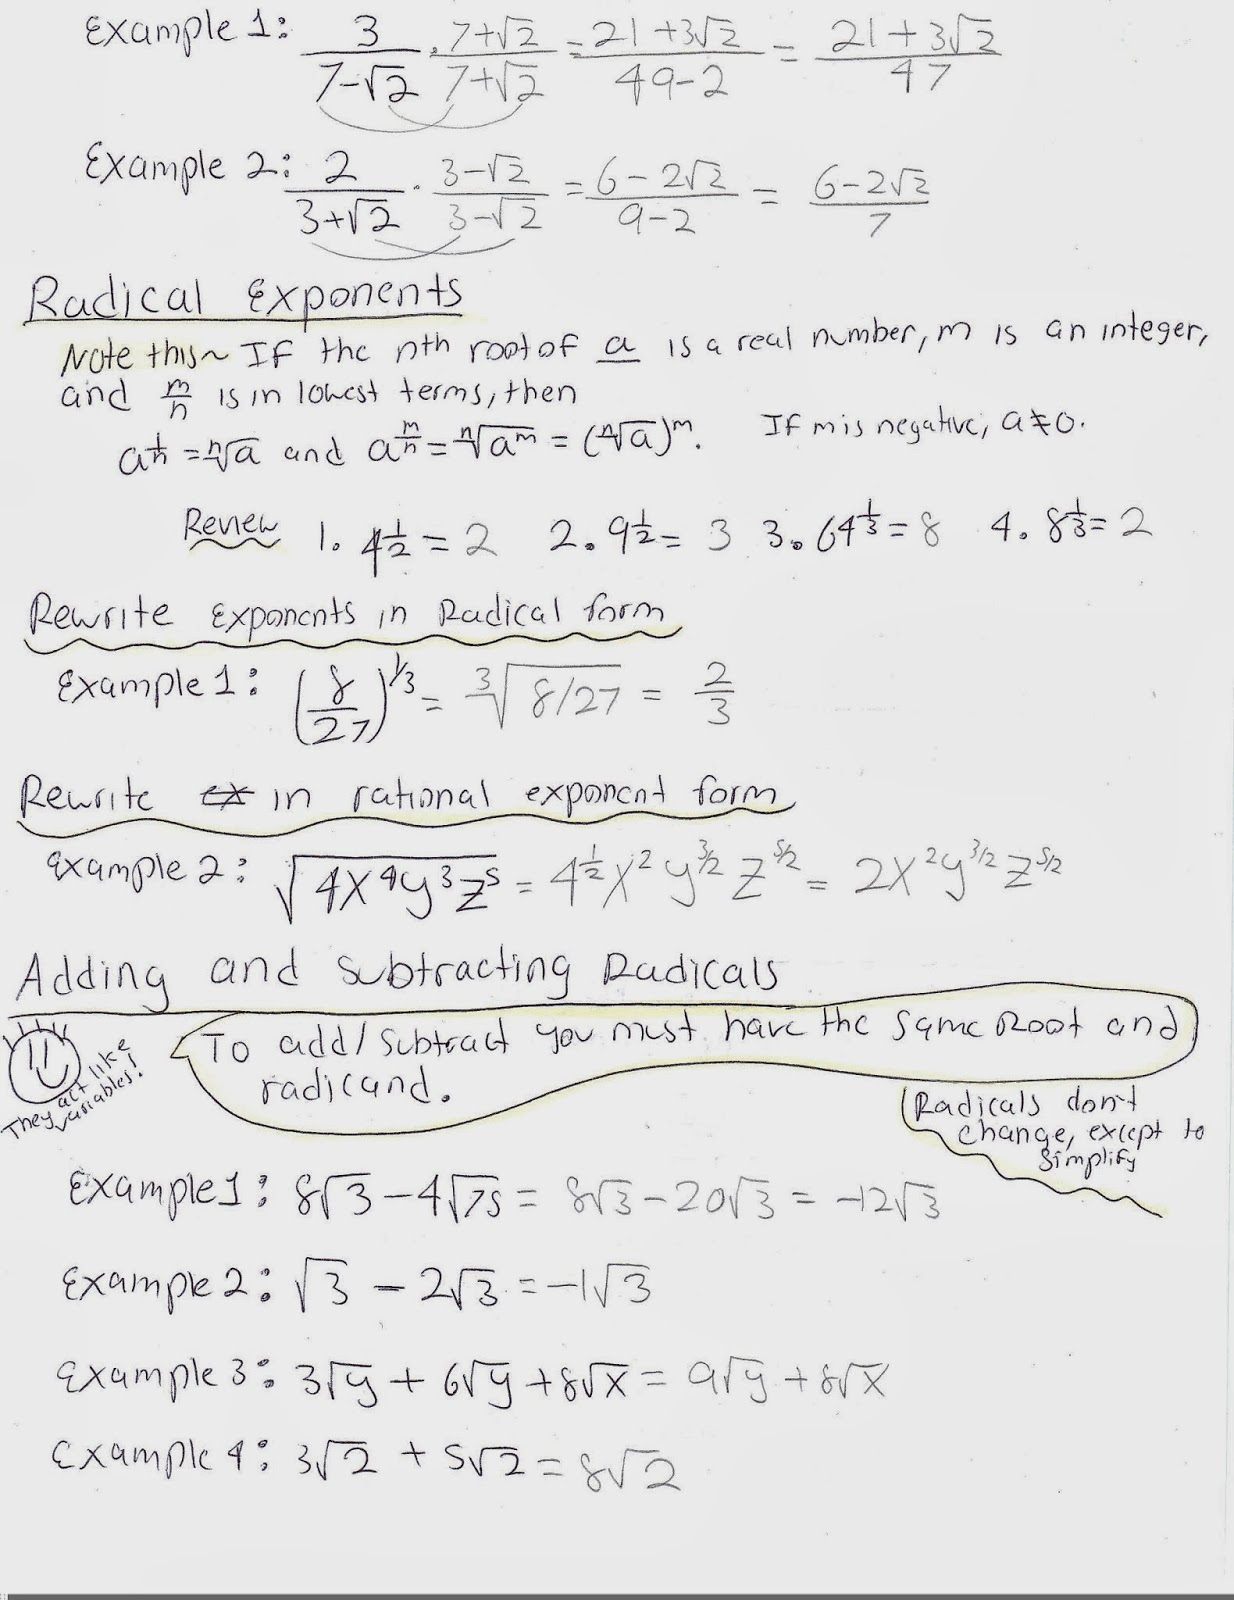 Example 1: 3/(7-√2) · (7+√2)/(7+√2) = (21+3√2)/(49-2) = (21+3√2)/47
Example 2: 2/(3+√2) · (3-√2)/(3-√2) = (6-2√2)/(9-2) = (6-2√2)/7
Radical Exponents
Note this~ If the nth root of a is a real number, m is an integer,
and m/n is in lowest terms, then
a^(1/n) = ⁿ√a and a^(m/n) = ⁿ√(a^m) = (ⁿ√a)^m. If m is negative, a≠0.
Review 1. 4^(1/2) = 2 2. 9^(1/2) = 3 3. 64^(1/3) = 8 4. 8^(1/3) = 2
Rewrite exponents in Radical form
Example 1: (8/27)^(1/3) = ³√(8/27) = 2/3
Rewrite ex in rational exponent form
Example 2: √(4x⁴y³z⁵) = 4^(1/2) x² y^(3/2) z^(5/2) = 2x² y^(3/2) z^(5/2)
Adding and Subtracting Radicals
To add/subtract you must have the same Root and
radicand.
They act like
variables!
Radicals don't
change, except to
simplify
Example 1: 8√3 - 4√75 = 8√3 - 20√3 = -12√3
Example 2: √3 - 2√3 = -1√3
Example 3: 3√y + 6√y + 8√x = 9√y + 8√x
Example 4: 3√2 + 5√2 = 8√2